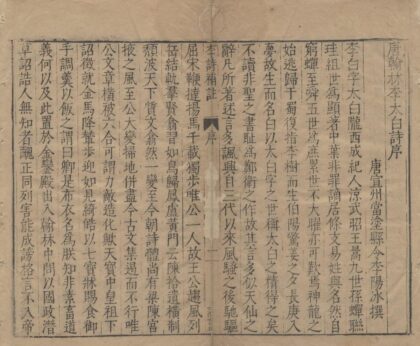 唐翰林李太白詩序
唐宣州當塗縣令李陽冰撰
李白字太白隴西成紀人涼武昭王暠九世孫蟬聯
珪組世爲顯著中葉非罪謫居條支易姓與名然自
窮蟬至舜五世爲庶累世不大曜亦可歎焉神龍之
始逃歸于蜀復指李樹而生伯陽驚姜之夕長庚入
夢故生而名白以太白字之世稱太白之精得之矣
不讀非聖之書恥爲鄭衛之作故其言多似天仙之
辭凡所著述言多諷興自三代以來風騷之後馳驅
李詩補註 序
屈宋鞭撻揚馬千載獨步唯公一人故王公趨風列
岳結軌羣賢翕習如鳥歸鳳盧黃門云陳拾遺橫制
頹波天下質文翕然一變至今朝詩體尚有梁陳宮
掖之風至公大變掃地併盡今古文集遏而不行唯
公文章橫被六合可謂力敵造化歟天寶中皇祖下
詔徵就金馬降輦步迎如見綺皓以七寶牀賜食御
手調羹以飯之謂曰卿是布衣名爲朕知非素畜道
義何以及此置於金鑾殿出入翰林中問以國政潛
草詔誥人無知者醜正同列害能成謗格言不入帝